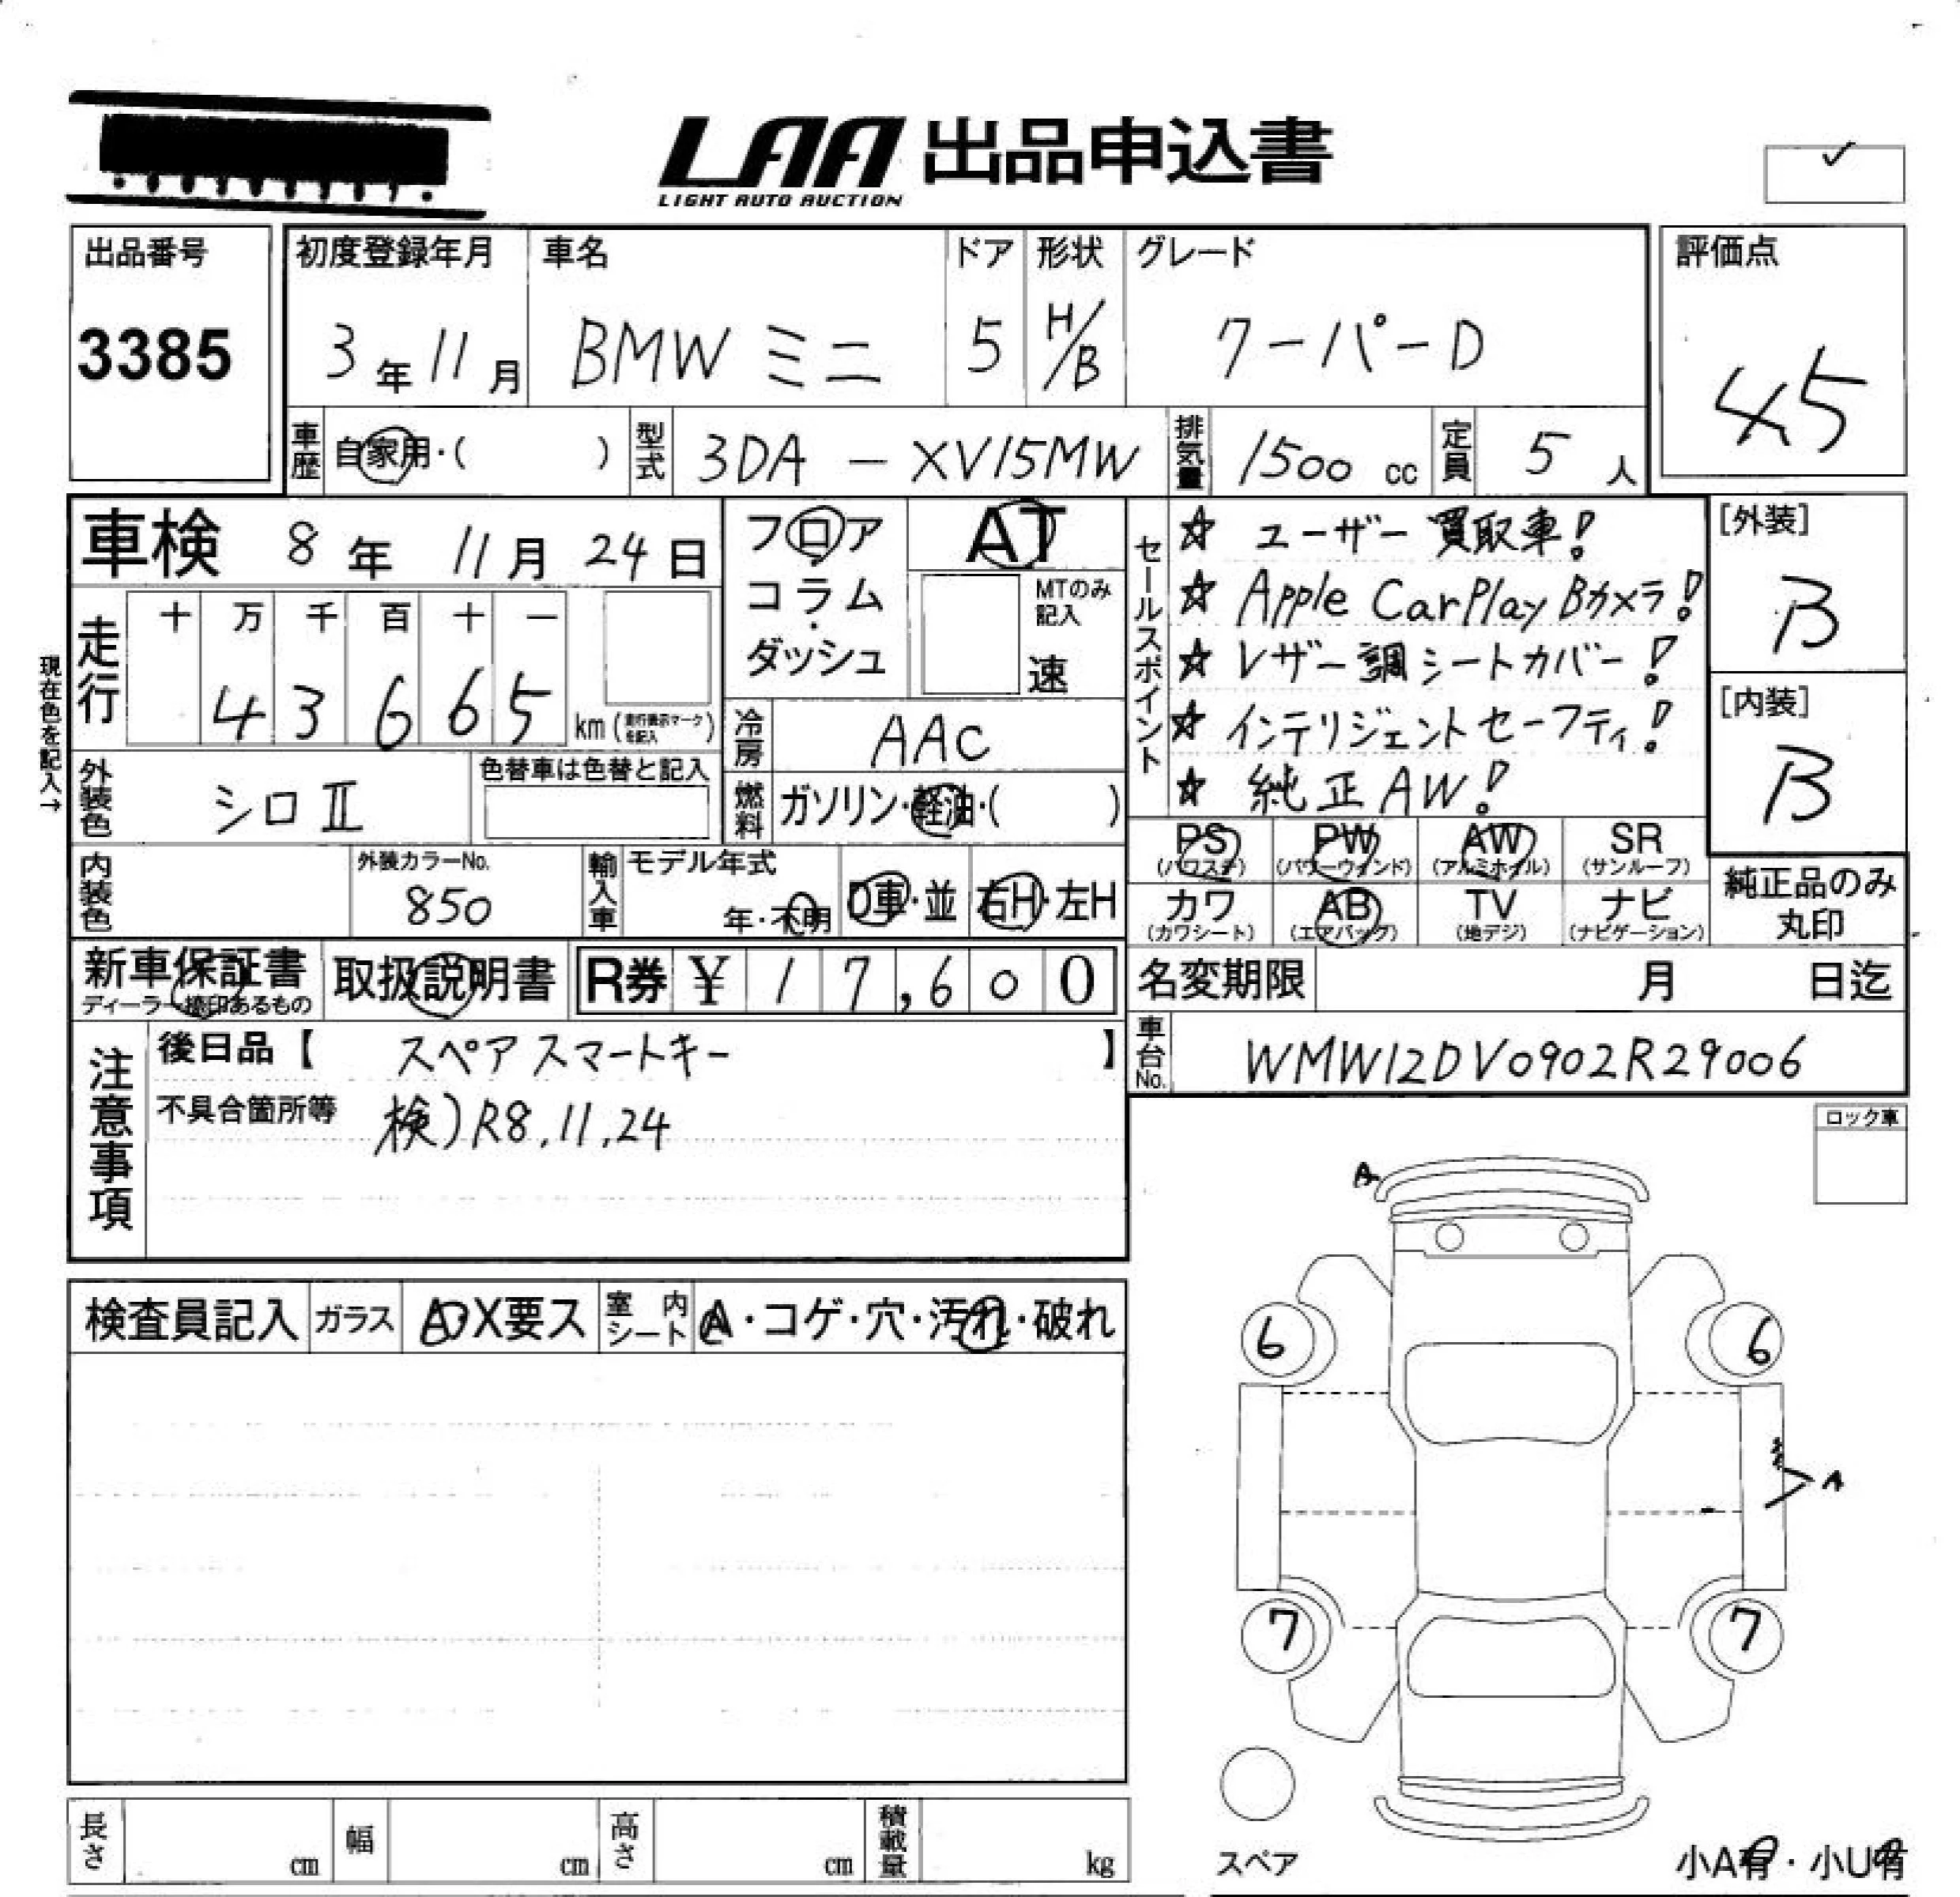 LAA 出品申込書
LIGHT AUTO AUCTION
✓
出品番号
3385
初度登録年月
3年11月
車名
BMW ミニ
ドア
5
形状
H/B
グレード
クーパーD
評価点
45
車歴
自家用・( )
型式
3DA - XV15MW
排気量
1500 cc
定員
5人
車検 8年 11月 24日
現在色を記入→
走行
十 万 千 百 十 一
4 3 6 6 5
km (走行機示マークを記入)
フロア
・
コラム
・
ダッシュ
AT
MTのみ記入
速
セールスポイント
☆ ユーザー買取車!
☆ Apple CarPlay Bカメラ!
☆ レザー調シートカバー!
☆ インテリジェントセーフティ!
☆ 純正AW!
[外装]
B
[内装]
B
外装色
シロⅡ
色替車は色替と記入
冷房
AAC
燃料
ガソリン・軽油・( )
内装色
外装カラーNo.
850
輸入車
モデル年式
年・不明
D車・並
右H・左H
PS
(パワステ)
PW
(パワーウィンド)
AW
(アルミホイル)
SR
(サンルーフ)
カワ
(カワシート)
AB
(エアバッグ)
TV
(地デジ)
ナビ
(ナビゲーション)
純正品のみ
丸印
新車保証書
ディーラー捺印あるもの
取扱説明書
R券 ¥ 1 7,6 0 0
名変期限 月 日迄
注意事項
後日品【 スペアスマートキー 】
不具合箇所等 検)R8.11.24
車台No.
WMW12DV0902R29006
ロック車
検査員記入
ガラス
A・X要ス
室内シート
A・コゲ・穴・汚れ・破れ
A
6
6
A
7
7
スペア
小A有・小U有
長さ cm
幅 cm
高さ cm
積載量 kg